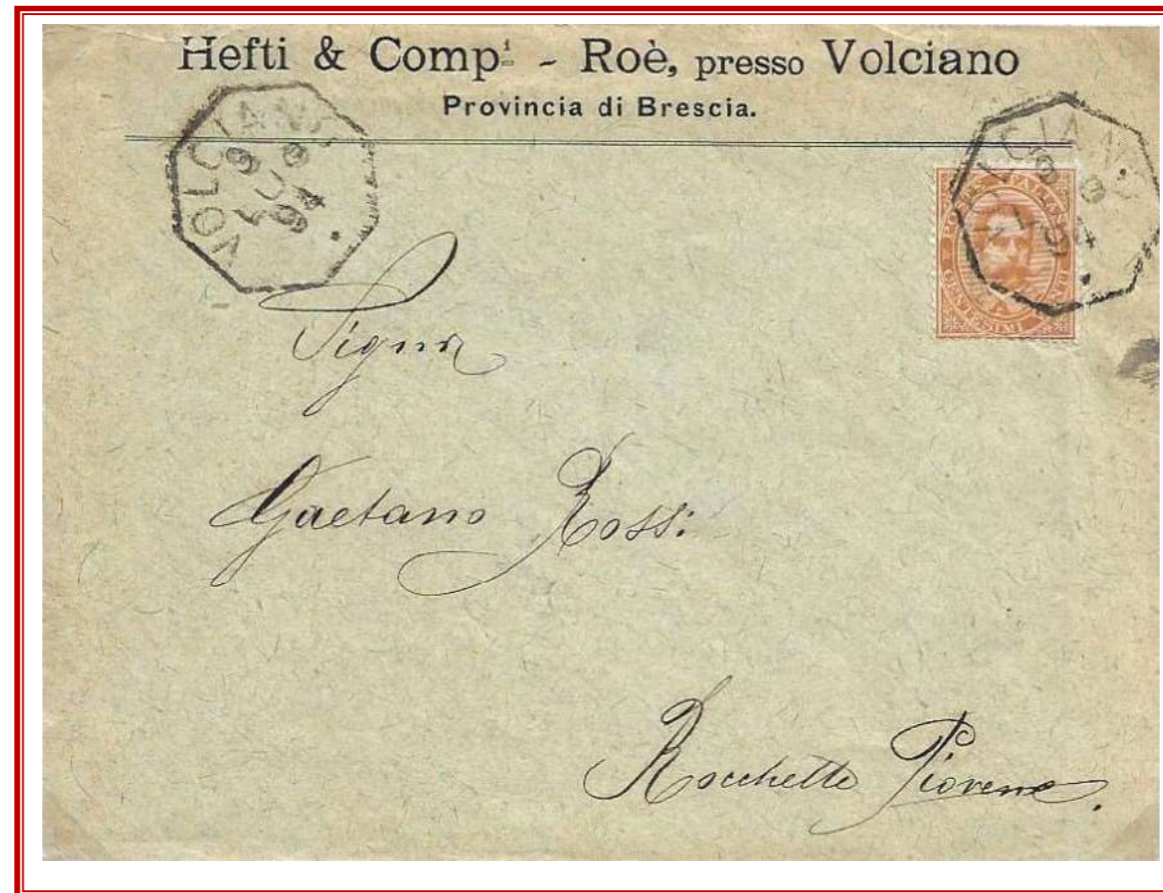 Hefti & Comp.ⁱ - Roè, presso Volciano
Provincia di Brescia.
VOLCIANO
9 8
LUG
94
VOLCIANO
POSTE ITALIANE
CENTESIMI
Signor
Gaetano Rossi
Rocchette Piovene.